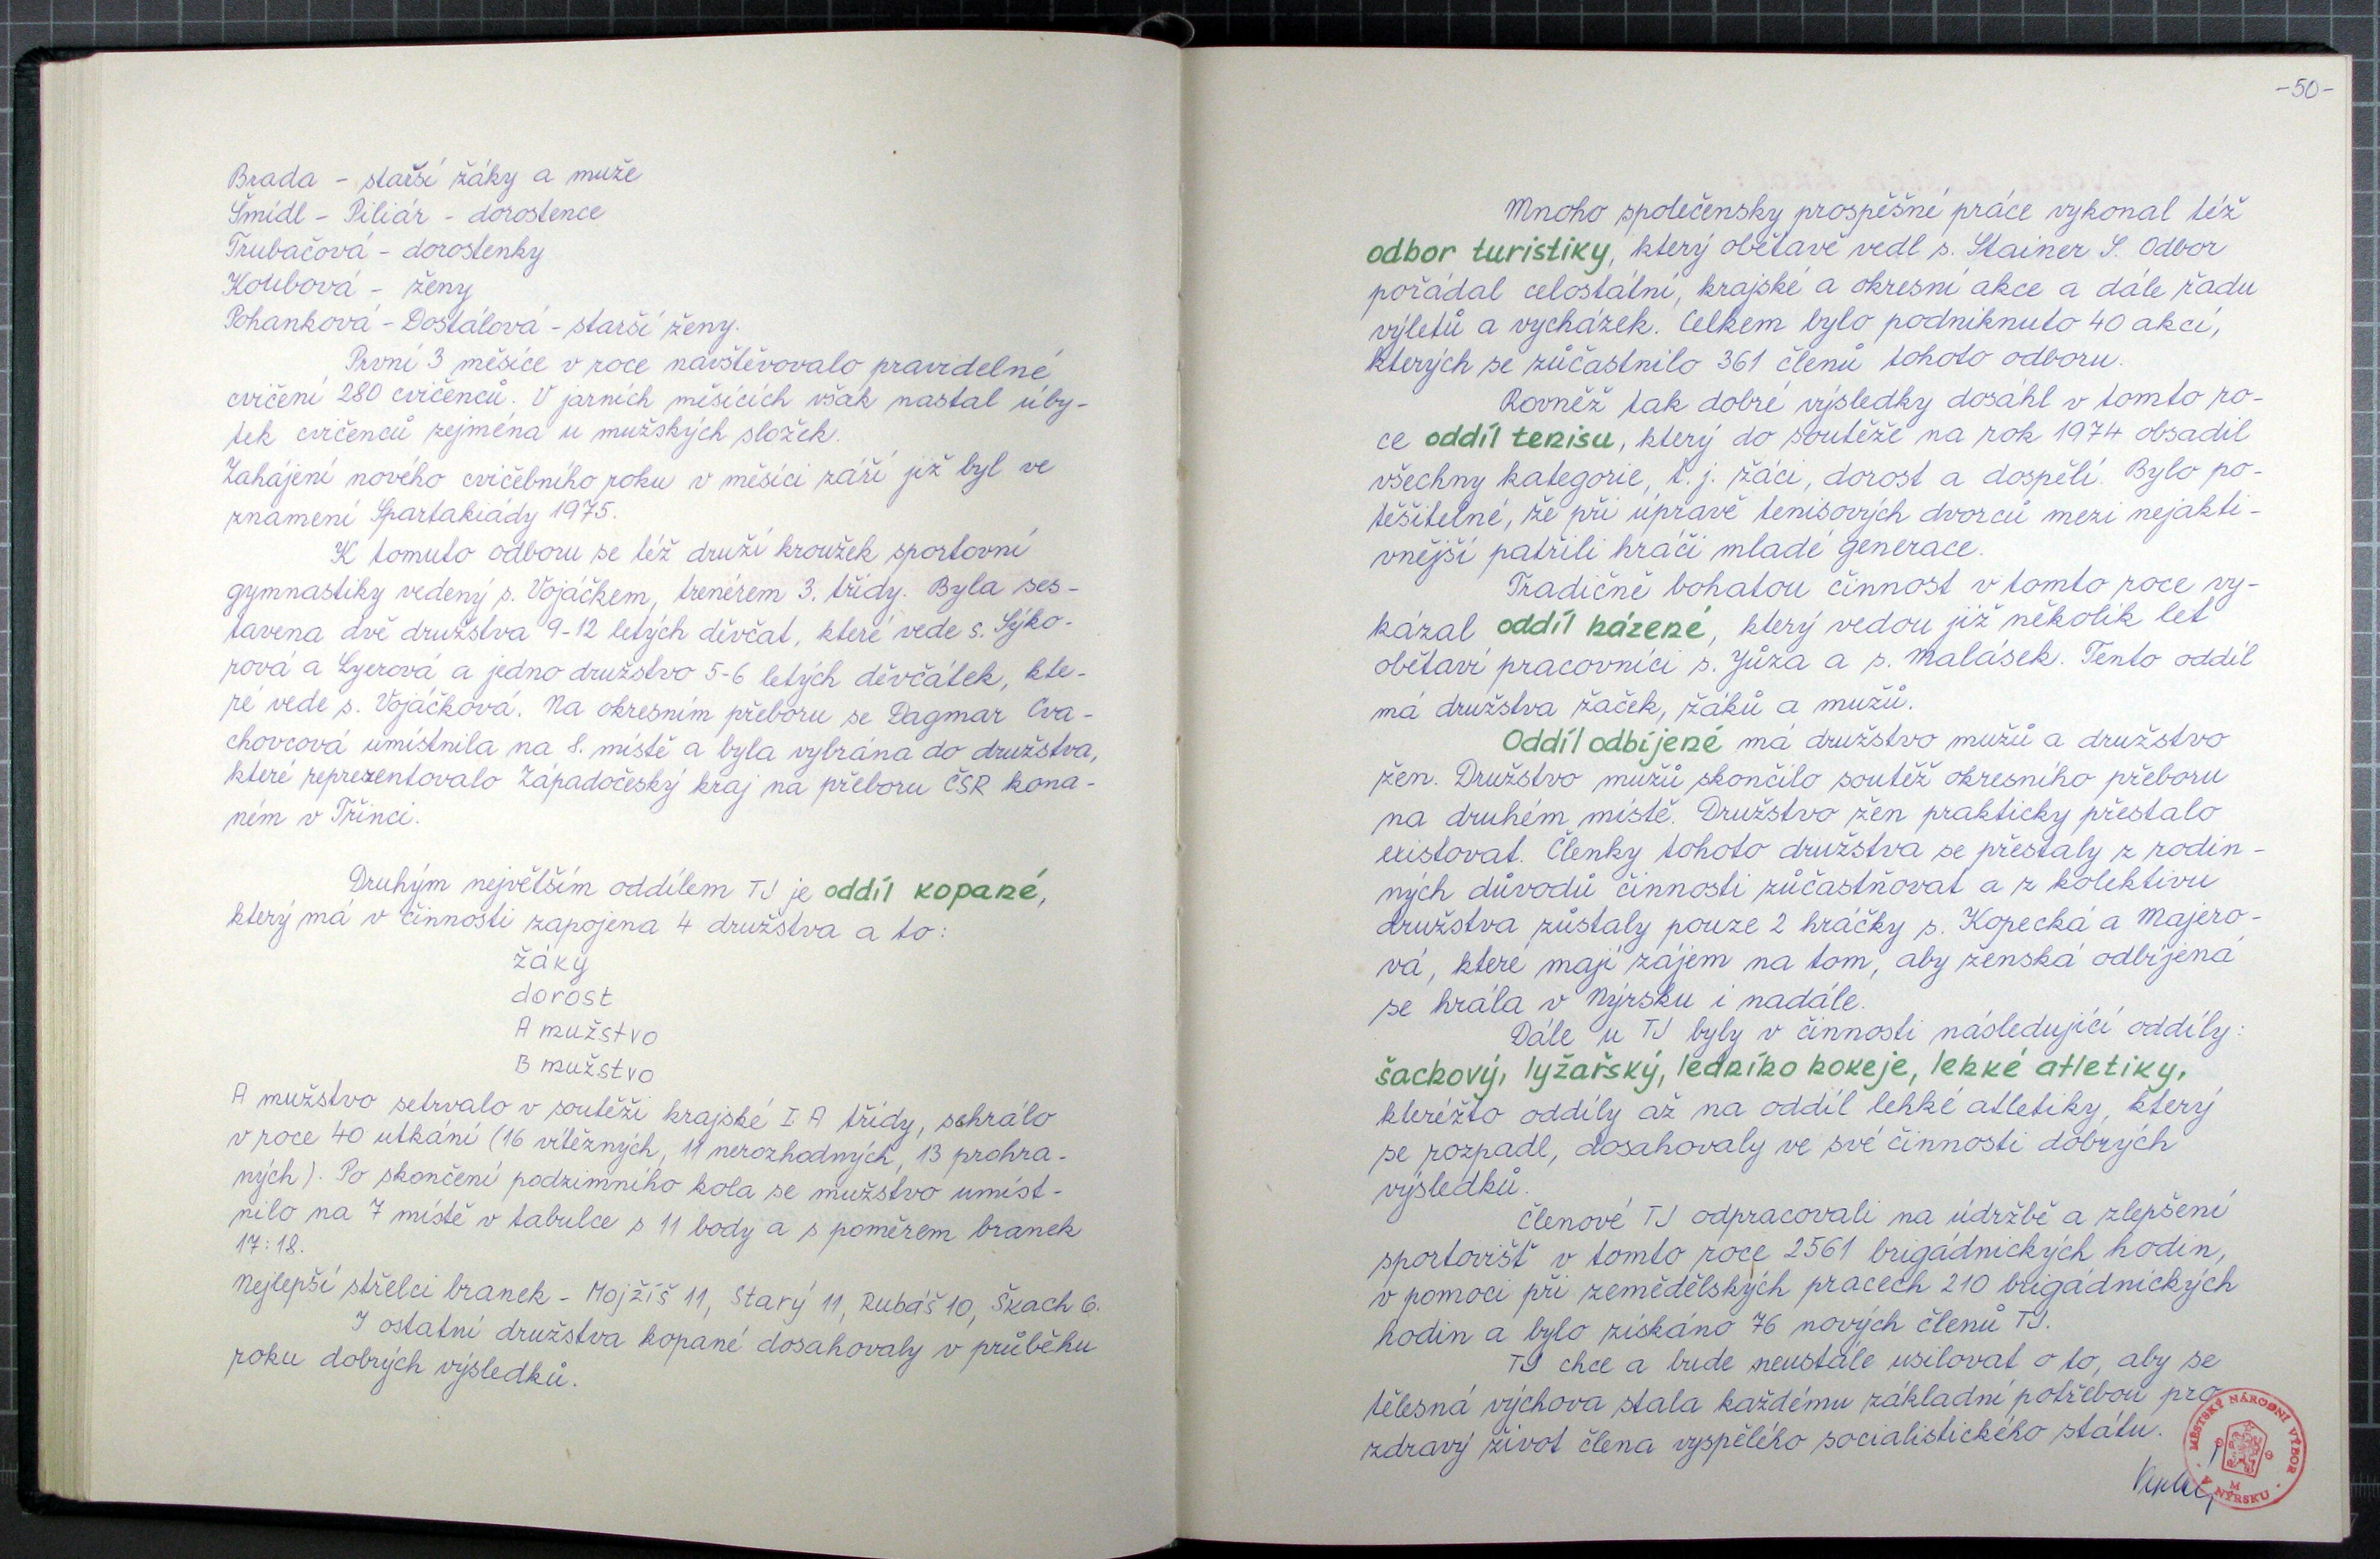 Brada - starší žáky a muže
Šmídl - Piliár - dorostence
Trubačová - dorostenky
Koubová - ženy
Pohanková - Dostálová - starší ženy.
První 3 měsíce v roce navštěvovalo pravidelné
cvičení 280 cvičenců. V jarních měsících však nastal úby-
tek cvičenců zejména u mužských složek.
Zahájení nového cvičebního roku v měsíci září již byl ve
znamení Spartakiády 1975.
K tomuto odboru se též druží kroužek sportovní
gymnastiky vedený s. Vojáčkem, trenérem 3. třídy. Byla ses-
tavena dvě družstva 9-12 letých děvčat, které vede s. Sýko-
rová a Lyerová a jedno družstvo 5-6 letých děvčátek, kte-
ré vede s. Vojáčková. Na okresním přeboru se Dagmar Cva-
chovcová umístnila na 8. místě a byla vybrána do družstva,
které reprezentovalo Západočeský kraj na přeboru ČSR kona-
ném v Třinci.
Druhým největším oddílem TJ je oddíl kopané,
který má v činnosti zapojena 4 družstva a to:
žáky
dorost
A mužstvo
B mužstvo
A mužstvo setrvalo v soutěži krajské I A třídy, sehrálo
v roce 40 utkání (16 vítězných, 11 nerozhodných, 13 prohra-
ných). Po skončení podzimního kola se mužstvo umíst-
nilo na 7 místě v tabulce s 11 body a s poměrem branek
17:18.
Nejlepší střelci branek - Mojžíš 11, Starý 11, Rubáš 10, Škach 6.
I ostatní družstva kopané dosahovaly v průběhu
roku dobrých výsledků.
-50-
Mnoho společensky prospěšné práce vykonal též
odbor turistiky, který obětavě vedl s. Stainer S. Odbor
pořádal celostátní, krajské a okresní akce a dále řadu
výletů a vycházek. Celkem bylo podniknuto 40 akcí,
kterých se zůčastnilo 361 členů tohoto odboru.
Rovněž tak dobré výsledky dosáhl v tomto ro-
ce oddíl tenisu, který do soutěže na rok 1974 obsadil
všechny kategorie, t.j. žáci, dorost a dospělí. Bylo po-
těšitelné, že při úpravě tenisových dvorců mezi nejakti-
vnější patřili hráči mladé generace.
Tradičně bohatou činnost v tomto roce vy-
kázal oddíl házené, který vedou již několik let
obětaví pracovníci s. Jůza a s. Malásek. Tento oddíl
má družstva žaček, žáků a mužů.
Oddíl odbíjené má družstvo mužů a družstvo
žen. Družstvo mužů skončilo soutěž okresního přeboru
na druhém místě. Družstvo žen prakticky přestalo
existovat. Členky tohoto družstva se přestaly z rodin-
ných důvodů činnosti zůčastňovat a z kolektivu
družstva zůstaly pouze 2 hráčky s. Kopecká a Majero-
vá, které mají zájem na tom, aby ženská odbíjená
se hrála v Nýrsku i nadále.
Dále u TJ byly v činnosti následující oddíly:
šachový, lyžařský, ledního hokeje, lehké atletiky,
kteréžto oddíly až na oddíl lehké atletiky, který
se rozpadl, dosahovaly ve své činnosti dobrých
výsledků.
Členové TJ odpracovali na údržbě a zlepšení
sportovišť v tomto roce 2561 brigádnických hodin,
v pomoci při zemědělských pracech 210 brigádnických
hodin a bylo získáno 76 nových členů TJ.
TJ chce a bude neustále usilovat o to, aby se
tělesná výchova stala každému základní potřebou pro
zdravý život člena vyspělého socialistického státu.
MĚSTSKÝ NÁRODNÍ VÝBOR
V NÝRSKU
M